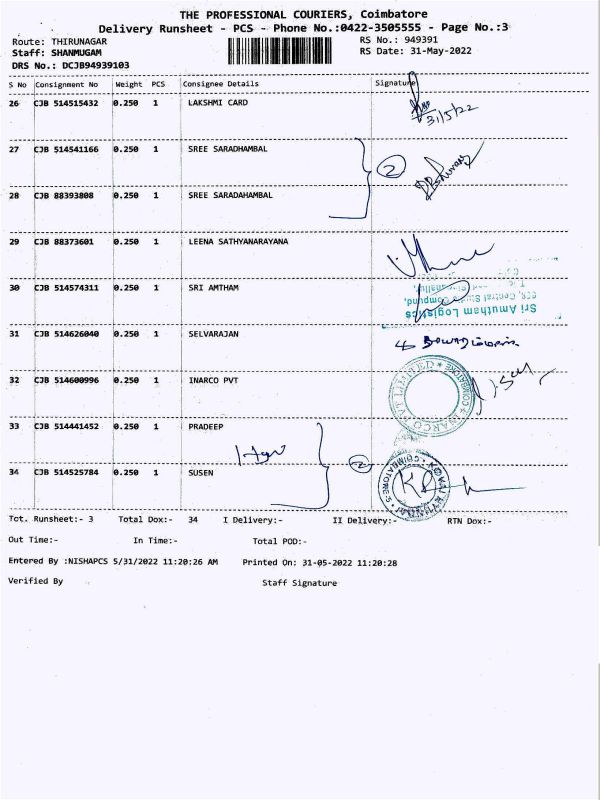 THE PROFESSIONAL COURIERS, Coimbatore
Delivery Runsheet - PCS - Phone No.:0422-3505555 - Page No.:3
Route: THIRUNAGAR RS No.: 949391
Staff: SHANMUGAM RS Date: 31-May-2022
DRS No.: DCJB94939103
S No Consignment No Weight PCS Consignee Details Signature
26 CJB 514515432 0.250 1 LAKSHMI CARD
31/5/22
27 CJB 514541166 0.250 1 SREE SARADHAMBAL
2
28 CJB 88393808 0.250 1 SREE SARADAHAMBAL
29 CJB 88373601 0.250 1 LEENA SATHYANARAYANA
30 CJB 514574311 0.250 1 SRI AMTHAM
Sri Amutham Logistics
31 CJB 514626040 0.250 1 SELVARAJAN
32 CJB 514600996 0.250 1 INARCO PVT
INARCO PVT LIMITED COIMBATORE
33 CJB 514441452 0.250 1 PRADEEP
2
34 CJB 514525784 0.250 1 SUSEN
Tot. Runsheet:- 3 Total Dox:- 34 I Delivery:- II Delivery:- RTN Dox:-
Out Time:- In Time:- Total POD:-
Entered By :NISHAPCS 5/31/2022 11:20:26 AM Printed On: 31-05-2022 11:20:28
Verified By Staff Signature